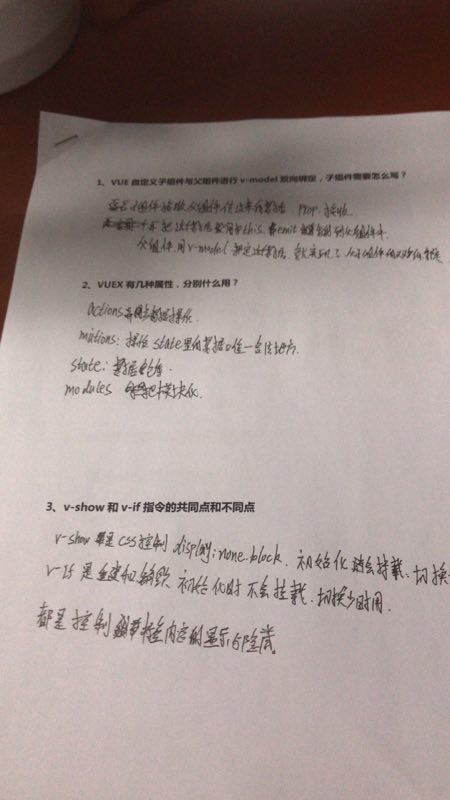 1、VUE 自定义子组件与父组件进行 v-model 双向绑定，子组件需要怎么写？
子组件接收父组件传过来的数据 prop 接收
把这个数据 用 this. emit 到父组件中.
父组件用 v-model 绑定这个数据, 就实现了 父子组件的双向绑定
2、VUEX 有几种属性，分别什么用？
actions 异步数据操作.
mutions: 操作 state 里的数据 唯一合法地方.
state: 数据仓库.
modules 把 模块化.
3、v-show 和 v-if 指令的共同点和不同点
v-show 是 css 控制 display: none. block. 初始化 会挂载、切换
v-if 是 重建和销毁 初始化时 不会挂载、切换少时用.
都是控制 内容的显示与隐藏.